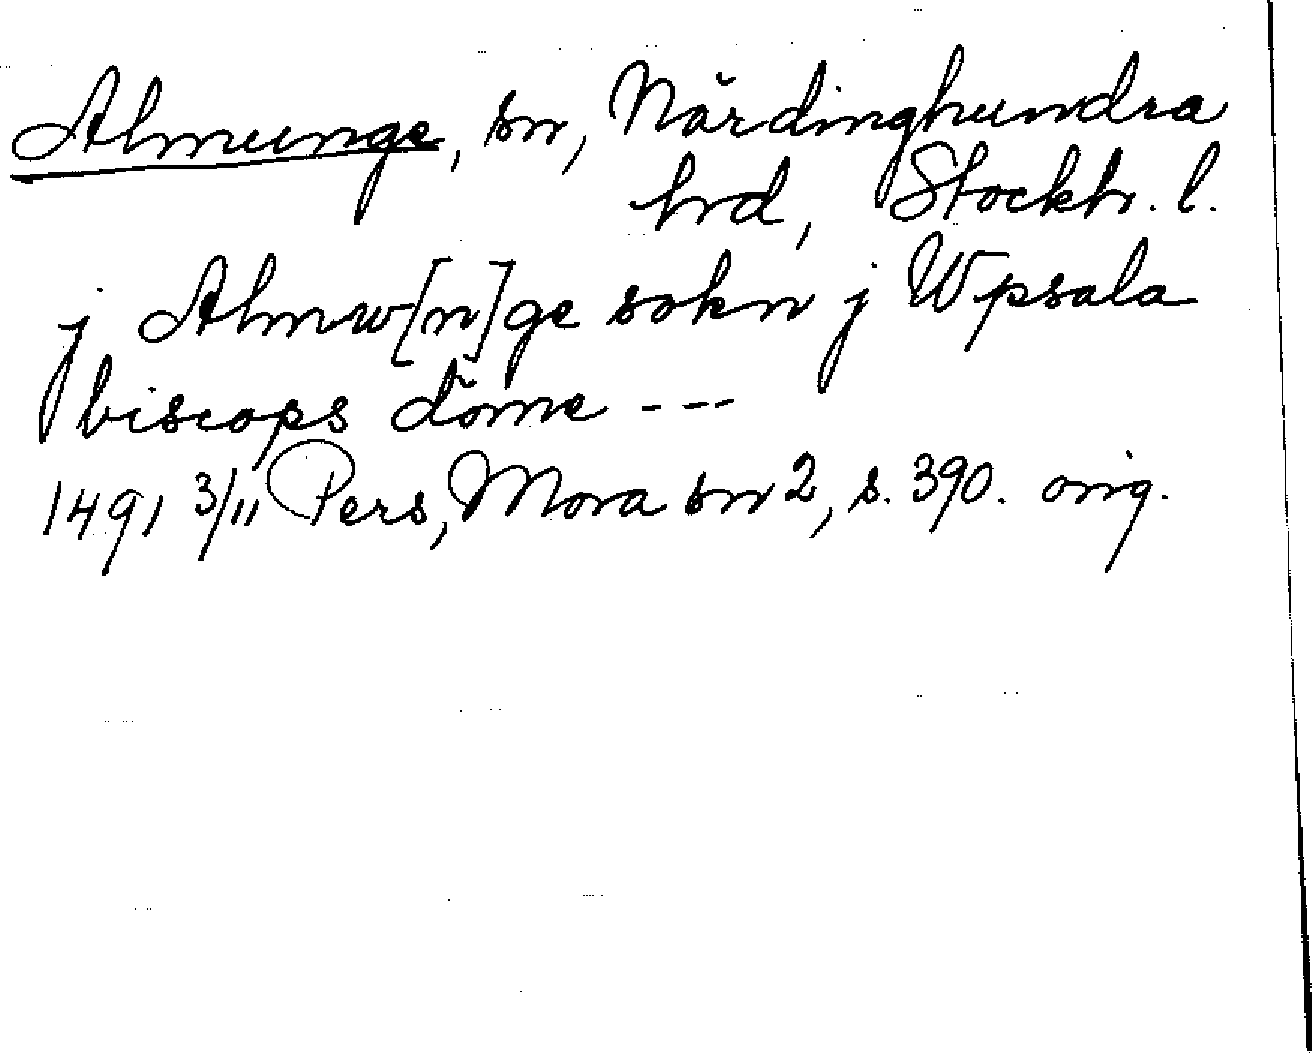 Almunge, sn, Närdinghundra
hrd, Stockh. l.
j Almw[n]ge sokn j Wpsala
biscops döme ---
1491 3/11 Pers, Mora sn 2, s. 390. orig.